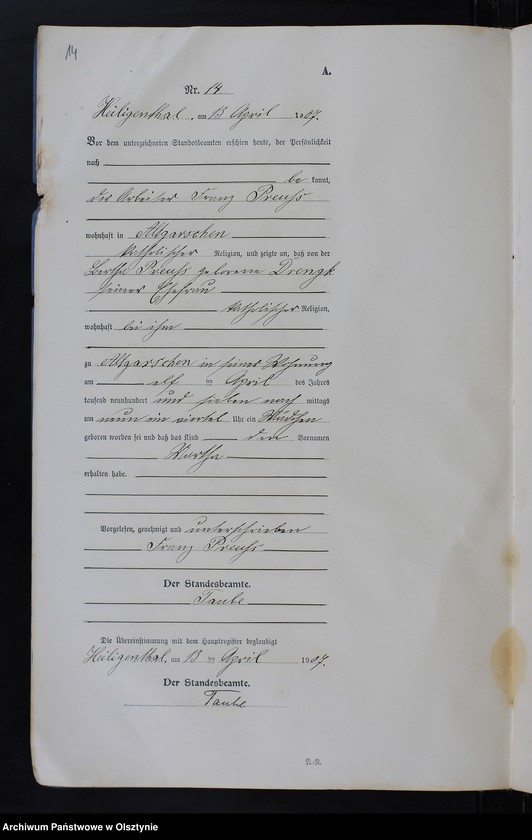 14
A.
Nr. 14
Heiligenthal, am 13 April 1907.
Vor dem unterzeichneten Standesbeamten erschien heute, der Persönlichkeit
nach
be kannt,
der Arbeiter Franz Preuß
wohnhaft in Altgarschen
katholischer Religion, und zeigte an, daß von der
Bertha Preuß geborene Drengk
seiner Ehefrau
katholischer Religion,
wohnhaft bei ihm
zu Altgarschen in seiner Wohnung
am elf ten April des Jahres
tausend neunhundert und sieben nach mittags
um neun ein viertel Uhr ein Mädchen
geboren worden sei und daß das Kind den Vornamen
Martha
erhalten habe.
Vorgelesen, genehmigt und unterschrieben
Franz Preuß
Der Standesbeamte.
Taube
Die Übereinstimmung mit dem Hauptregister beglaubigt
Heiligenthal, am 13 ten April 1907.
Der Standesbeamte.
Taube
Archiwum Państwowe w Olsztynie